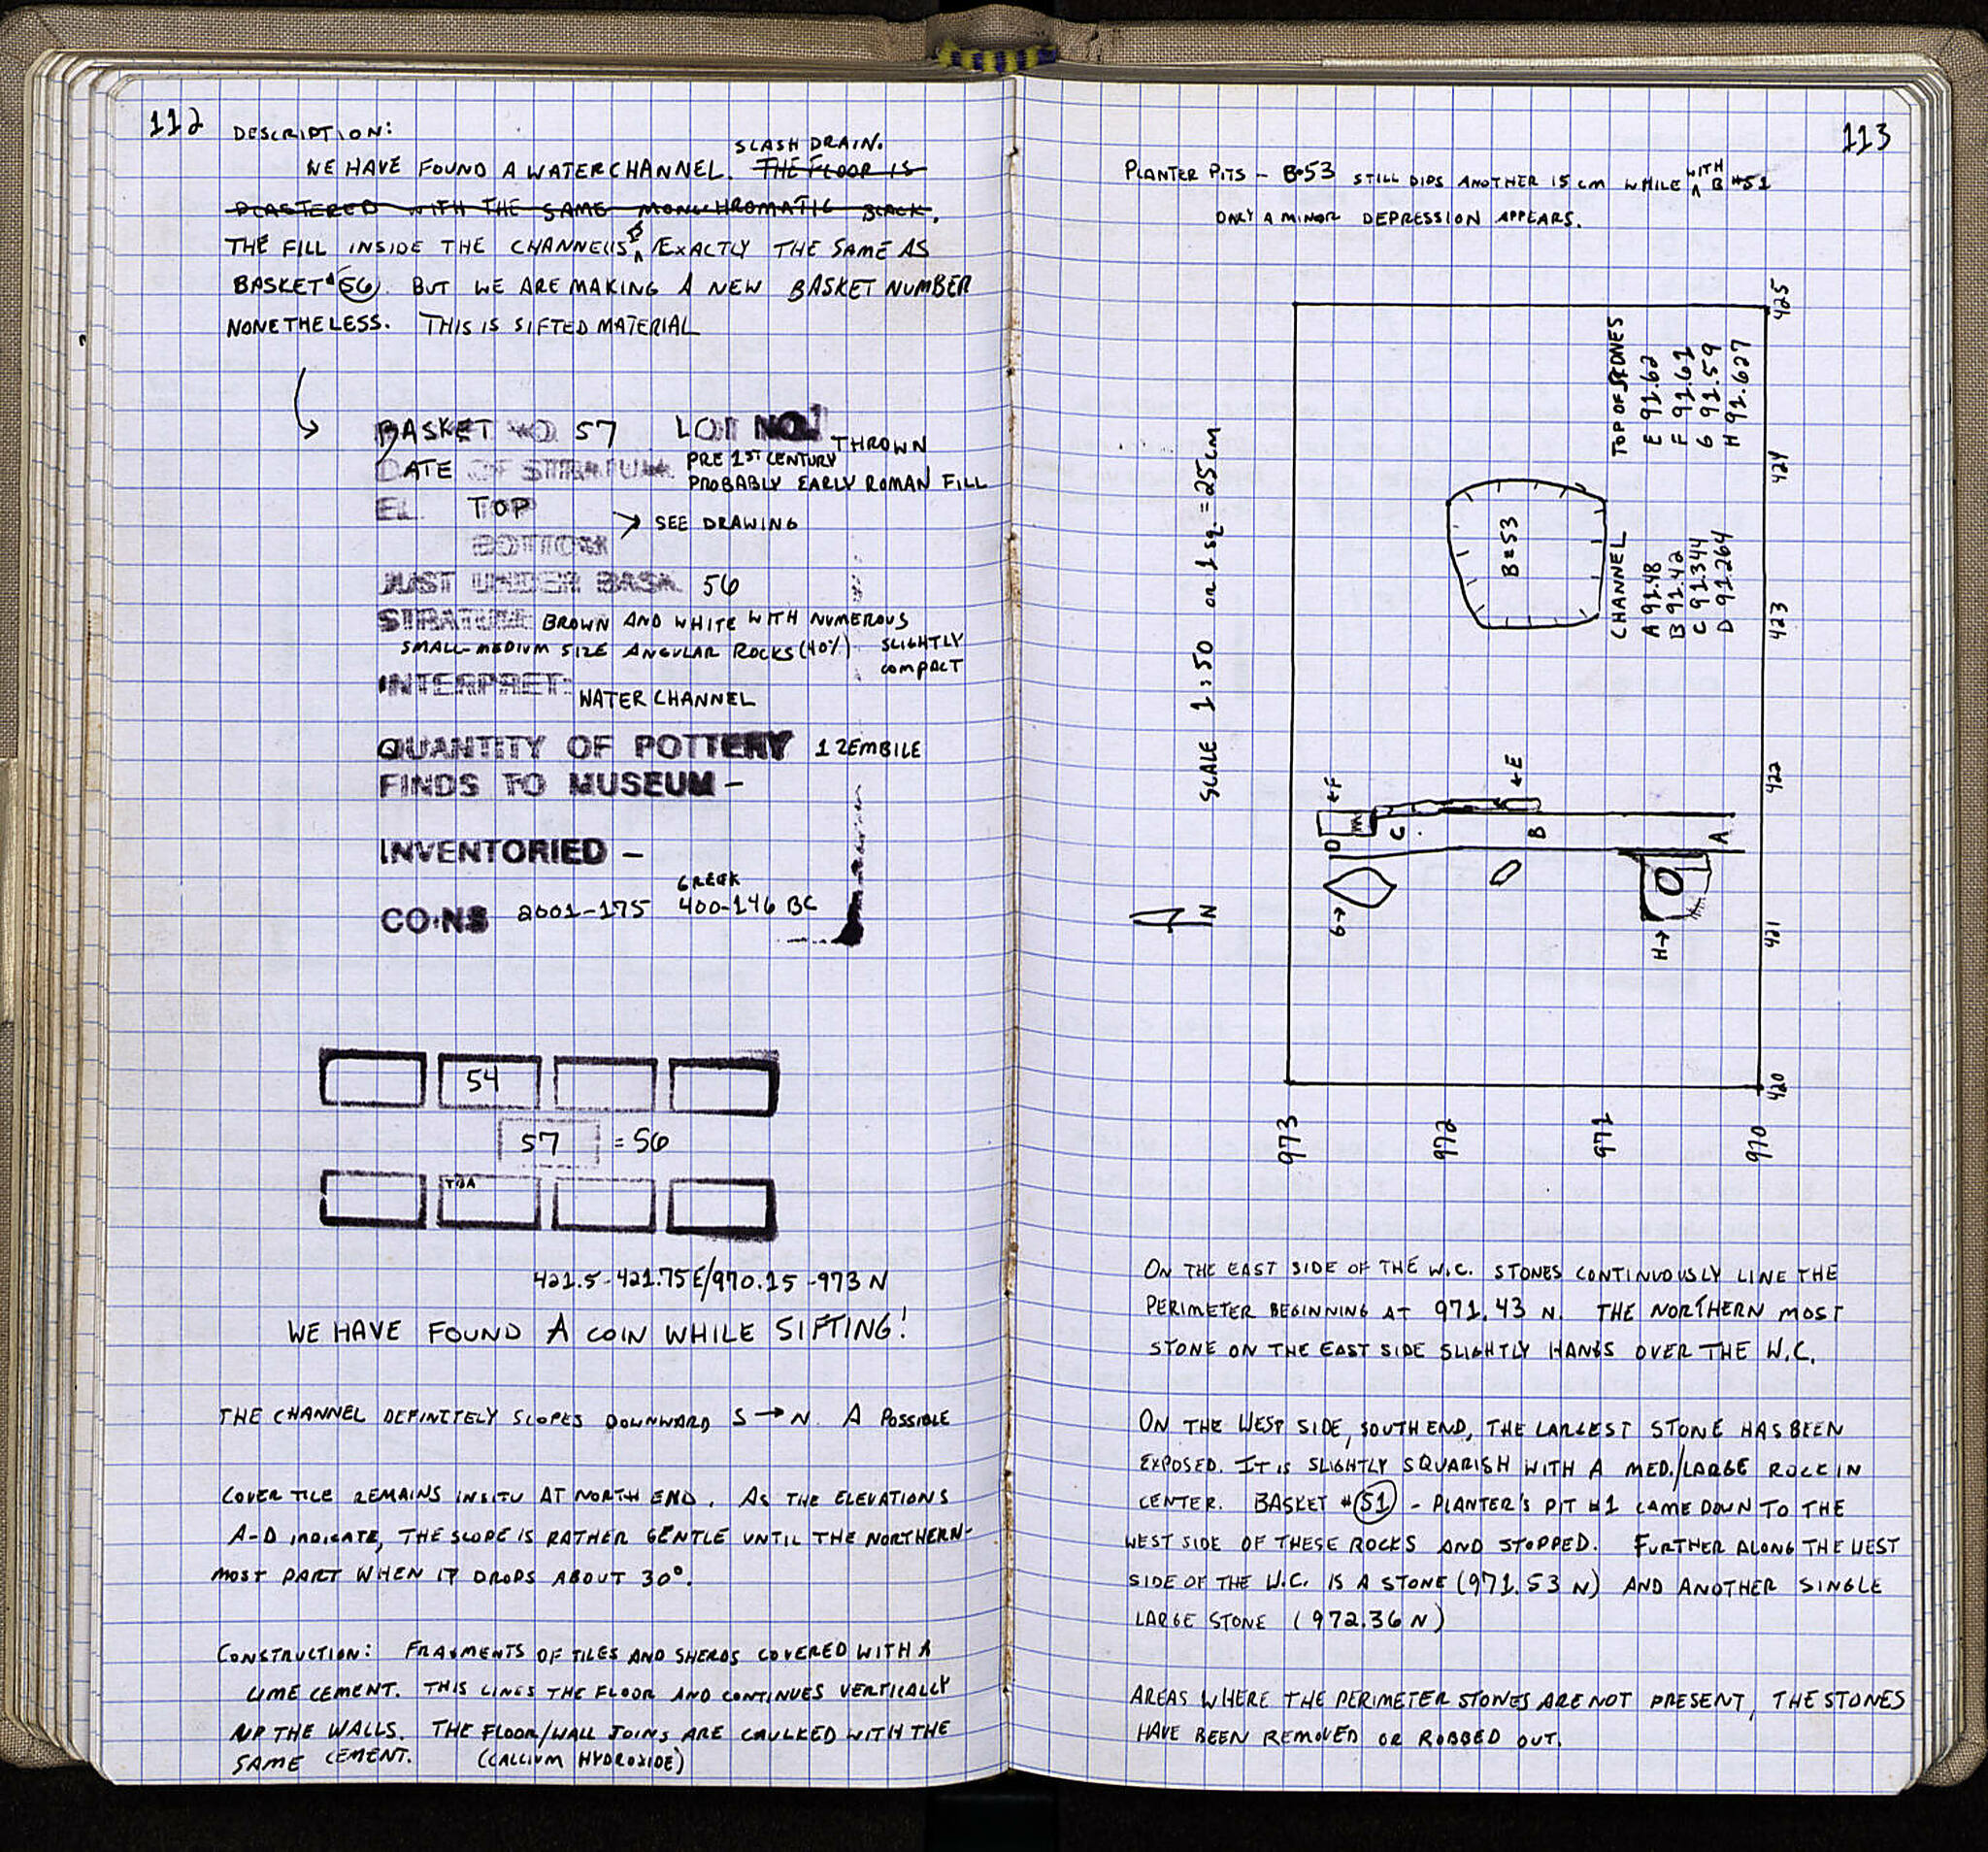 112
DESCRIPTION:
SLASH DRAIN.
WE HAVE FOUND A WATERCHANNEL. THE FLOOR IS
PLASTERED WITH THE SAME MONOCHROMATIC BLACK.
THE FILL INSIDE THE CHANNEL IS EXACTLY THE SAME AS
BASKET #56. BUT WE ARE MAKING A NEW BASKET NUMBER
NONETHELESS. THIS IS SIFTED MATERIAL
BASKET NO 57 LOT NO. THROWN
DATE OF STRATUM PRE 1ST CENTURY
PROBABLY EARLY ROMAN FILL
EL. TOP
→ SEE DRAWING
BOTTOM
JUST UNDER BASK. 56
STRATUM: BROWN AND WHITE WITH NUMEROUS
SMALL-MEDIUM SIZE ANGULAR ROCKS (40%) SLIGHTLY
COMPACT
INTERPRET: WATER CHANNEL
QUANTITY OF POTTERY 1 ZEMBILE
FINDS TO MUSEUM -
INVENTORIED -
GREEK
COINS 2001-175 400-146 BC
54
57 = 56
TBA
421.5-421.75E/970.15-973 N
WE HAVE FOUND A COIN WHILE SIFTING!
THE CHANNEL DEFINITELY SLOPES DOWNWARD S → N. A POSSIBLE
COVER TILE REMAINS INSITU AT NORTH END. AS THE ELEVATIONS
A-D INDICATE, THE SLOPE IS RATHER GENTLE UNTIL THE NORTHERN-
MOST PART WHEN IT DROPS ABOUT 30°.
CONSTRUCTION: FRAGMENTS OF TILES AND SHERDS COVERED WITH A
LIME CEMENT. THIS LINES THE FLOOR AND CONTINUES VERTICALLY
UP THE WALLS. THE FLOOR/WALL JOINS ARE CAULKED WITH THE
SAME CEMENT. (CALCIUM HYDROXIDE)
113
PLANTER PITS - B#53 STILL DIPS ANOTHER 15 CM WHILE WITH B #51
ONLY A MINOR DEPRESSION APPEARS.
SCALE 1:50 or 1 sq. = 25cm
N
TOP OF STONES
E 91.62
F 91.61
G 91.59
H 91.627
CHANNEL
A 91.48
B 91.42
C 91.344
D 91.264
B#53
←F
←E
D
C
B
A
G→
H→
425
424
423
422
421
420
973
972
971
970
ON THE EAST SIDE OF THE W.C. STONES CONTINUOUSLY LINE THE
PERIMETER BEGINNING AT 971.43 N. THE NORTHERN MOST
STONE ON THE EAST SIDE SLIGHTLY HANGS OVER THE W.C.
ON THE WEST SIDE, SOUTH END, THE LARGEST STONE HAS BEEN
EXPOSED. IT IS SLIGHTLY SQUARISH WITH A MED./LARGE ROCK IN
CENTER. BASKET #51 - PLANTER'S PIT #1 CAME DOWN TO THE
WEST SIDE OF THESE ROCKS AND STOPPED. FURTHER ALONG THE WEST
SIDE OF THE W.C. IS A STONE (971.53 N) AND ANOTHER SINGLE
LARGE STONE (972.36 N)
AREAS WHERE THE PERIMETER STONES ARE NOT PRESENT, THE STONES
HAVE BEEN REMOVED OR ROBBED OUT.